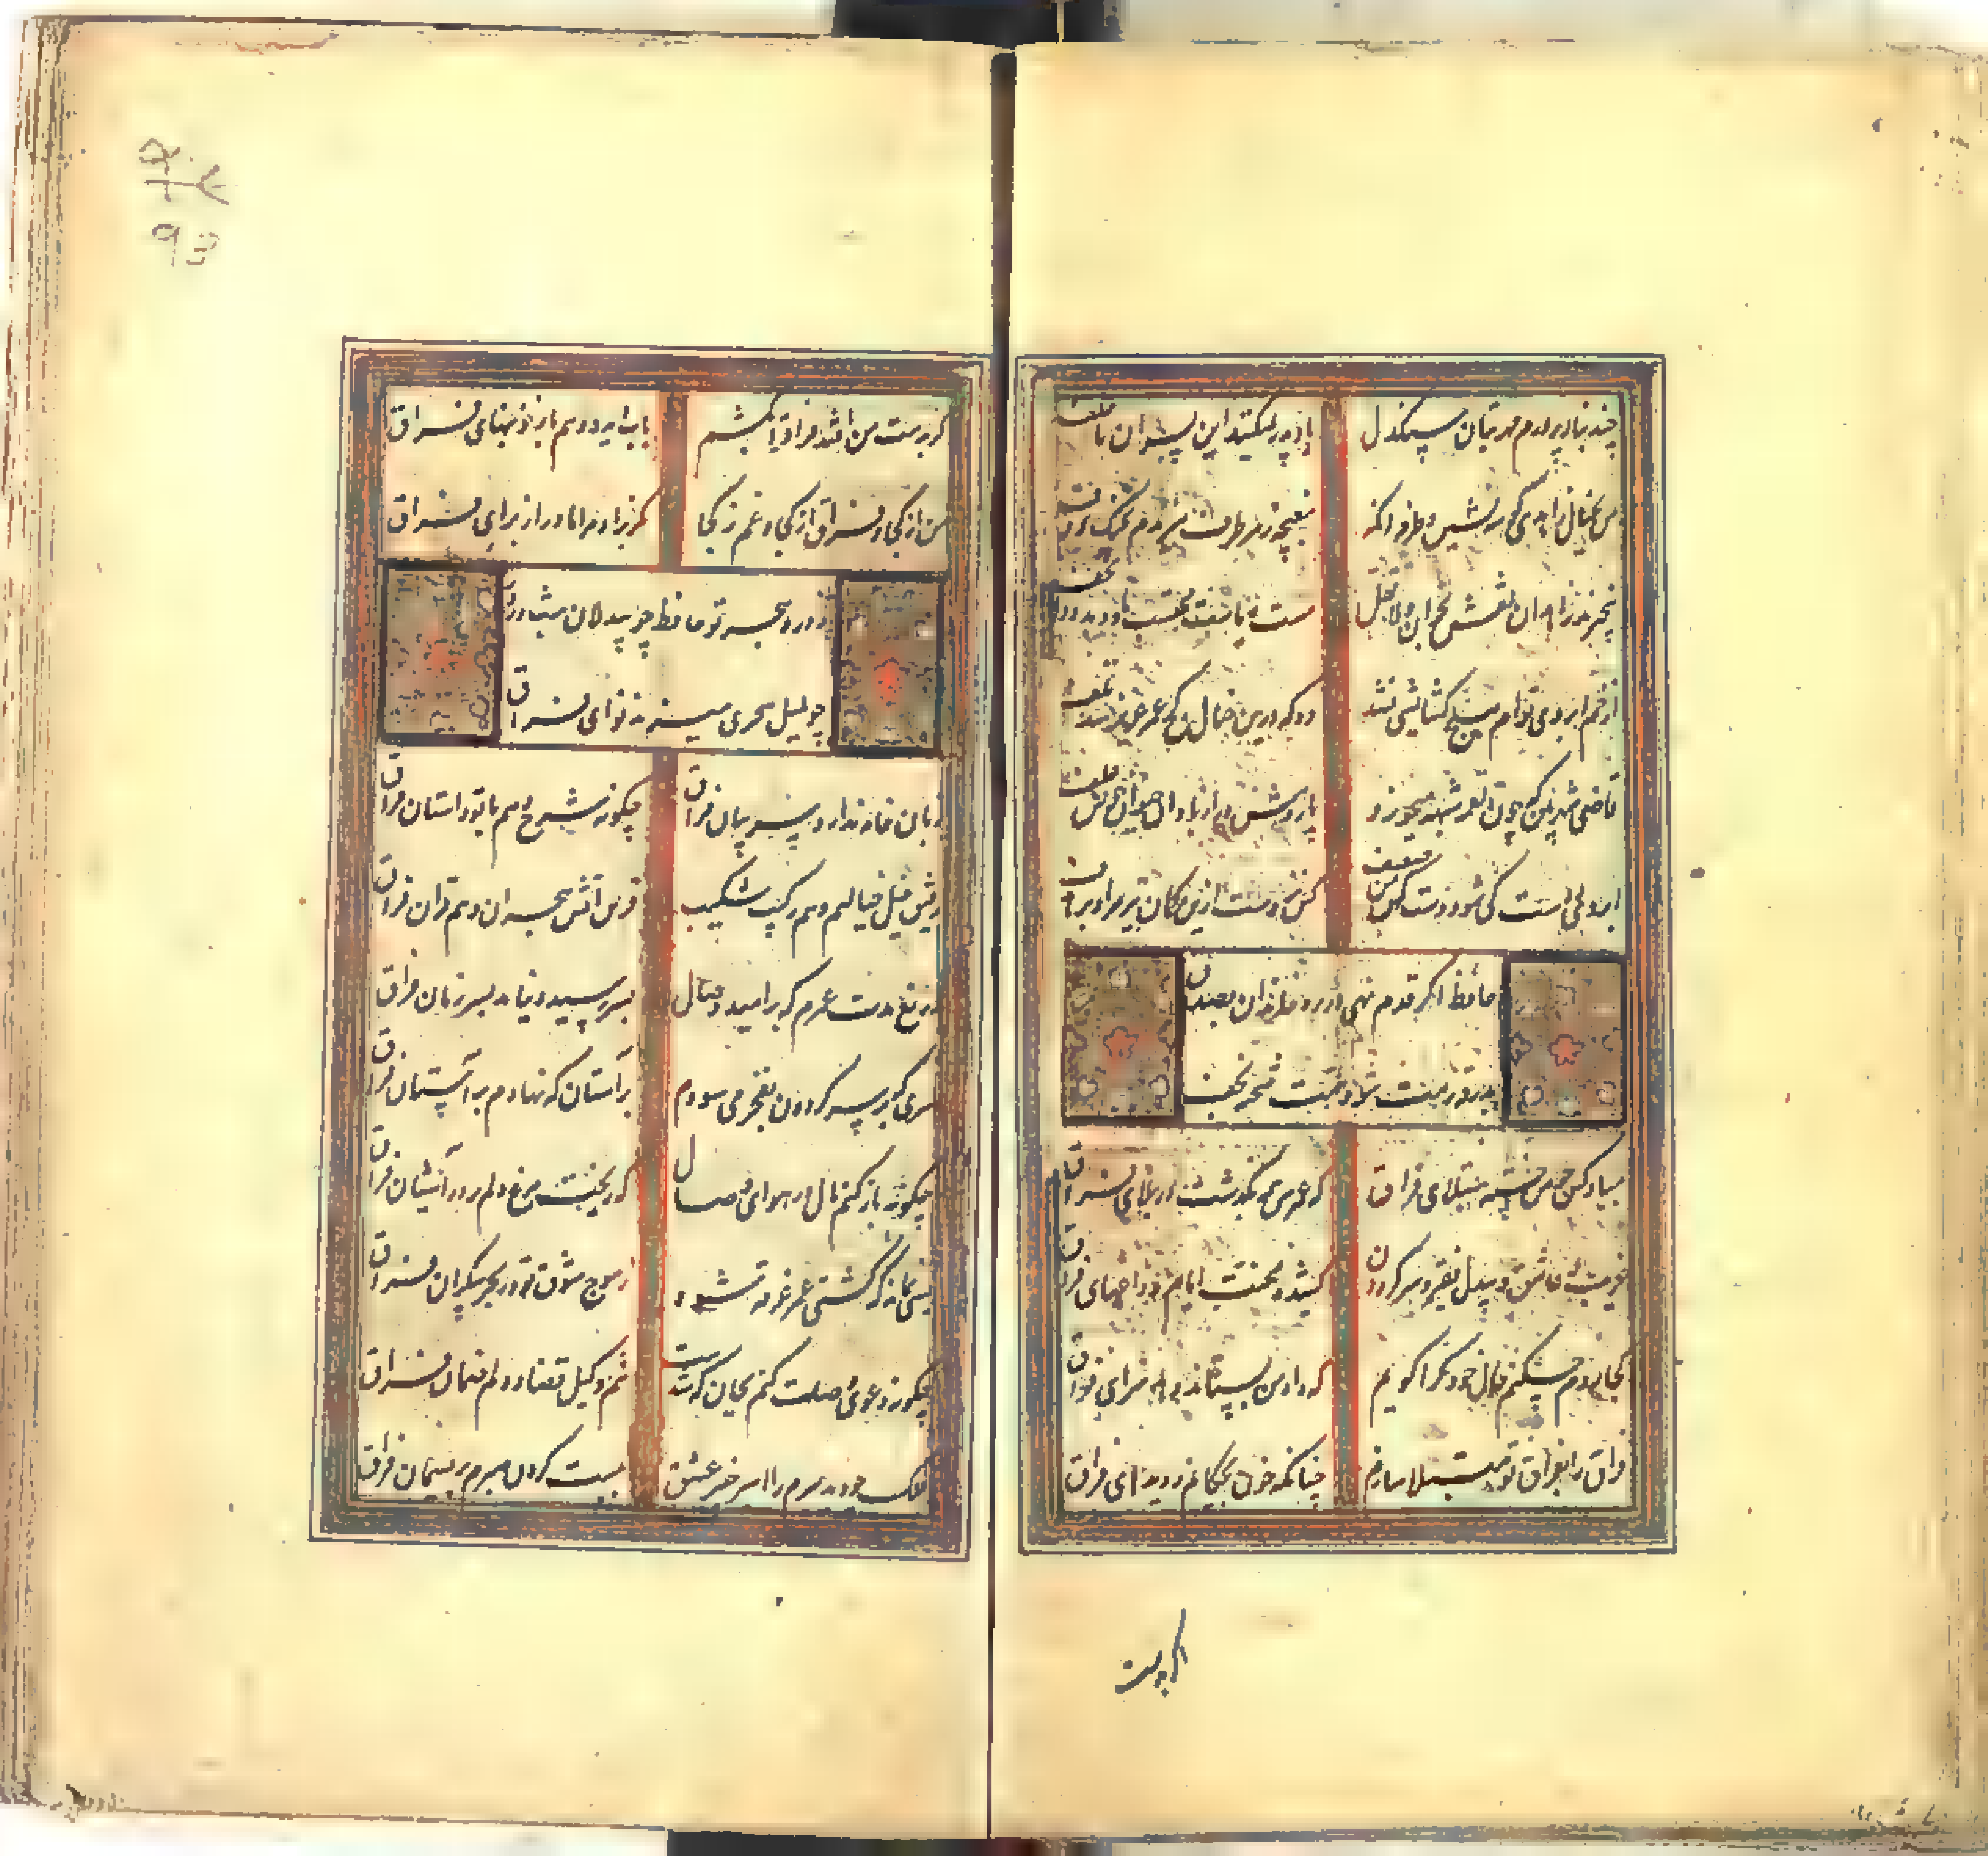 چند بناز پرورم مهر بتان سنگدل
یاد پدر نمیکنند این پسران ناخلف
من بخیال زاهدی گوشه نشین و طرفه آنکه
مغبچه ز هر طرف می زندم بچنگ و دف
بیخبرند زاهدان نقش بخوان و لا تقل
مست ریاست محتسب باده بده و لا تخف
از خم ابروی توام هیچ گشایشی نشد
وه که درین خیال کج عمر عزیز شد تلف
پاردمش دراز باد این حیوان خوش علف
ابروی دوست کی شود دست کش ضعیف
کس نزدست ازین کمان تیر مراد بر هدف
حافظ اگر قدم نهی در ره خاندان بصدق
بدرقه رهت شود همت شحنه نجف
مباد کس چو من خسته مبتلای فراق
که عمر من همه بگذشت در بلای فراق
غریب و عاشق و بیدل فقیر و سرگردان
کشیده محنت ایام و داغهای فراق
کجا روم چه کنم حال خود کرا گویم
که داد من بستاند دهد سزای فراق
فراق را بفراق تو مبتلا سازم
چنانکه خون بچکانم ز دیدهای فراق
اگر بدست
گر بدست من افتد فراق را بکشم
بآب دیده دهم باز خونبهای فراق
من از کجا و فراق از کجا و غم ز کجا
مگر بزاد مرا مادر از برای فراق
ز درد هجر تو حافظ چو بیدلان شب و روز
چو بلبل سحری میزند نوای فراق
زبان خامه ندارد سر بیان فراق
چگونه شرح دهم با تو داستان فراق
رفیق خیل خیالیم و هم رکیب شکیب
قرین آتش هجران و هم قران فراق
دریغ مدت عمرم که بر امید وصال
بسر رسید و نیامد بسر زمان فراق
سری که بر سر گردون بفخر می سودم
بر آستان که نهادم بر آستان فراق
چگونه باز کنم بال در هوای وصال
که ریخت مرغ دلم پر در آشیان فراق
بسی نمانده که کشتی عمر غرقه شود
ز موج شوق تو در بحر بیکران فراق
چگونه دعوی وصلت کنم بجان که شدست
تنم وکیل قضا و دلم ضمان فراق
فلک چو دید سرم را اسیر چنبر عشق
ببست گردن صبرم بریسمان فراق